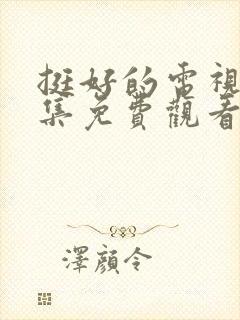 挺好的電視
集免費觀看
澤顏令